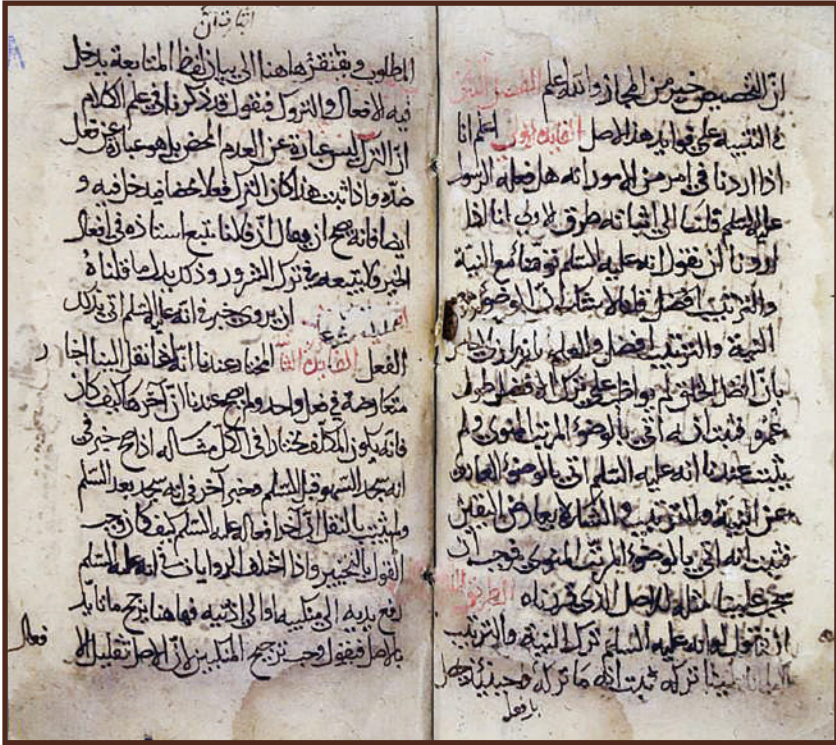 ان التخصيص خير من المجاز والله اعلم الفصل الثاني
في التنبيه على فوايد هذا الاصل الفايدة الاولى اعلم انا
اذا اردنا في امر من الامور انه هل فعله الرسول
عليه السلم قلنا الى اثباته طرق الاول انا اذا
اردنا ان نقول انه عليه السلم توضا مع النية
والترتيب افضل قلنا لا شك ان الوضوء مع
النية والترتيب افضل والعلم
بان افضل الخلق لم يواظب على ترك الافضل طول
عمره فثبت انه اتى بالوضوء المرتب المنوى ولم
يثبت عندنا انه عليه السلم اتى بالوضوء العارى
عن النية والترتيب والشك لا يعارض اليقين
فثبت انه اتى بالوضوء المرتب المنوى فوجب ان
يجب علينا مثله للاصل الذى قررناه الطريق
ان نقول لو انه عليه السلم ترك النية والترتيب
علينا تركه ثبت انه ما تركه وحينئذ
اثبات ان
المطلوب ويفتقر هاهنا الى بيان لفظ المتابعة يدخل
فيه الافعال والتروك فنقول قد ذكرنا فى علم الكلام
ان الترك ليس عبارة عن العدم المحض بل هو عبارة عن فعل
ضده واذا ثبت هذا كان الترك فعلا خاصا فيدخل فيه و
ايضا فانه يصح ان يقال ان فلانا يتبع استاذه فى افعال
الخير ولا يتبعه فى ترك الشرور وذكر يدل ما قلناه
ان يروى خبر فى انه عليه السلم اتى بذلك
الفعل الفايدة الثا المختار عندنا انه اذا نقل الينا اخبار
متعارضة فى فعل واحد ولم يصح عندنا ان آخرها كيف كان
فانه يكون المكلف مختارا فى الكل مثاله اذا صح خبر فى
انه سجد السهو قبل السلم وخبر آخر فى انه سجد بعد السلم
ولم يثبت بالنقل ان آخر افعاله عليه السلم كيف كان وجب
القول بالتخيير واذا اختلف الروايات فى انه عليه السلم
رفع يديه الى منكبيه او الى اذنيه فهاهنا يرجح ما تايد
بالاصل فيقول وجب ترجيح المنكبين لان الاصل تقليل الا
فعال